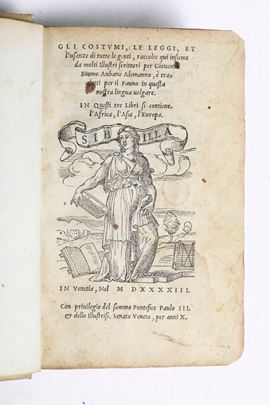 GLI COSTVMI, LE LEGGI, ET
l'usanze di tutte le genti, raccolte qui insieme
da molti Illustri scrittori per Giouanni
Boemo Aubano Alemanno, e tra
dotti per il Fauno in questa
nostra lingua uolgare.
IN Questi tre Libri si contiene.
l'Africa, l'Asia, l'Europa.
SIBILLA
IN Venetia, Nel M D XXXXIII.
Con priuilegio del sommo Pontefice Paulo III.
& dello Illustriss. Senato Veneto, per anni X.